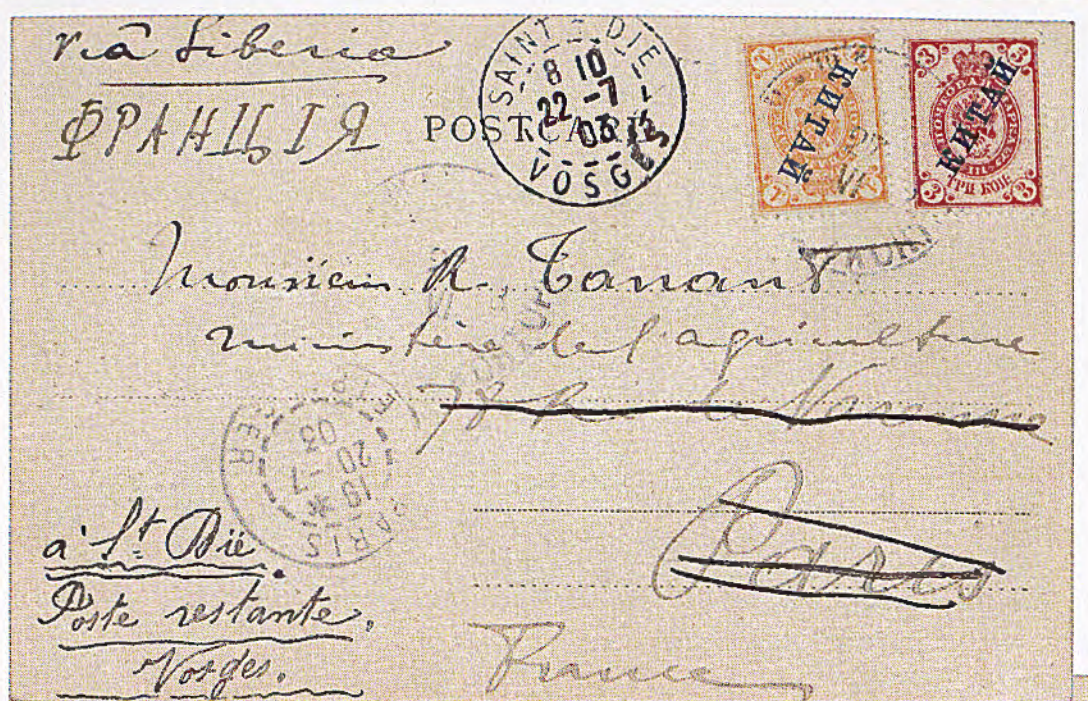 viâ Siberia
ФРАНЦІЯ
POSTCARD
SAINT-DIÉ
8 10
22 -7
03
VOSGES
1
1
КИТАЙ
1
1
3
3
КИТАЙ
3
ТРИ КОП.
3
Monsieur R. Tanant
ministère de l'agriculture
78 R. de Varenne
Paris
France
PARIS ETRANGER
19
20 -7
03
à St Dié.
Poste restante.
Vosges.